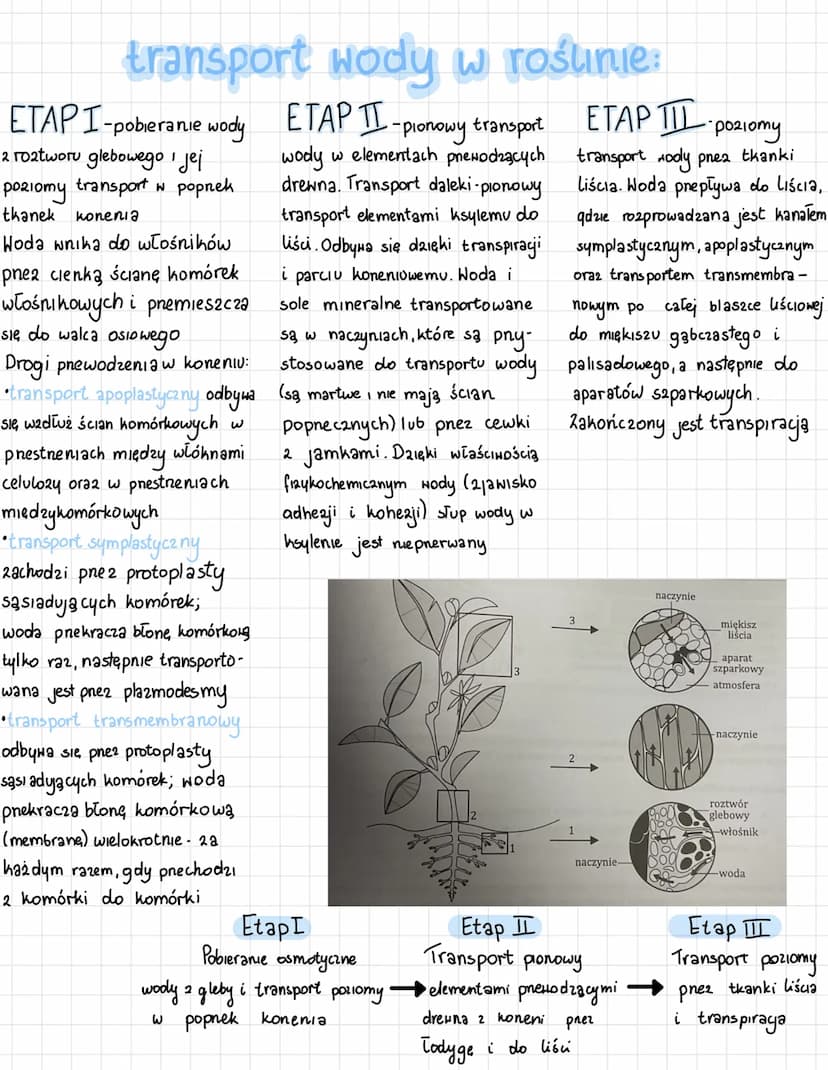 transport wody w roślinie:
ETAP I - pobieranie wody
z roztworu glebowego i jej
poziomy transport w poprzek
tkanek korzenia
Woda wnika do włośników
przez cienką ścianę komórek
włośnikowych i przemieszcza
się do walca osiowego
Drogi przewodzenia w korzeniu:
•transport apoplastyczny odbywa
się wzdłuż ścian komórkowych w
przestrzeniach między włóknami
celulozy oraz w przestrzeniach
międzykomórkowych
•transport symplastyczny
zachodzi przez protoplasty
sąsiadujących komórek;
woda przekracza błonę komórkową
tylko raz, następnie transporto-
wana jest przez plazmodesmy
•transport transmembranowy
odbywa się przez protoplasty
sąsiadujących komórek; woda
przekracza błonę komórkową
(membranę) wielokrotnie - za
każdym razem, gdy przechodzi
z komórki do komórki
ETAP II - pionowy transport
wody w elementach przewodzących
drewna. Transport daleki - pionowy
transport elementami ksylemu do
liści. Odbywa się dzięki transpiracji
i parciu korzeniowemu. Woda i
sole mineralne transportowane
są w naczyniach, które są przy-
stosowane do transportu wody
(są martwe i nie mają ścian
poprzecznych) lub przez cewki
z jamkami. Dzięki właściwością
fizykochemicznym wody (zjawisko
adhezji i kohezji) słup wody w
ksylenie jest nieprzerwany
ETAP III - poziomy
transport wody przez tkanki
liścia. Woda przepływa do liścia,
gdzie rozprowadzana jest kanałem
symplastycznym, apoplastycznym
oraz transportem transmembra-
nowym po całej blaszce liściowej
do miękiszu gąbczastego i
palisadowego, a następnie do
aparatów szparkowych.
Zakończony jest transpiracją
3
2
1
3
2
1
naczynie
miękisz
liścia
aparat
szparkowy
atmosfera
naczynie
roztwór
glebowy
włośnik
naczynie
woda
Etap I
Pobieranie osmotyczne
wody z gleby i transport poziomy
w poprzek korzenia
Etap II
Transport pionowy
elementami przewodzącymi
drewna z korzeni przez
łodygę i do liści
Etap III
Transport poziomy
przez tkanki liścia
i transpiracja